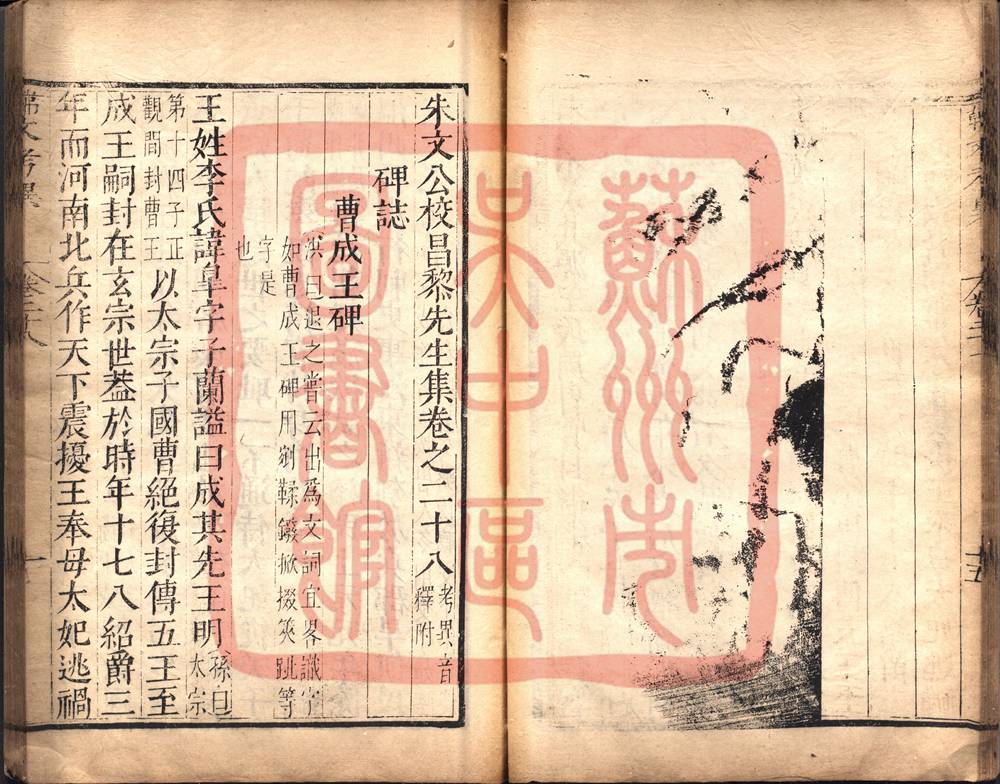 朱文公校昌黎先生集卷之二十八
考異音
釋附
碑誌
曹成王碑
洪曰退之嘗云出為文詞宜畧識字
如曹成王碑用剜鞣鏺掀掇筴跳等
字是
也
王姓李氏諱皐字子蘭謚曰成其先王明
孫曰
太宗
第十四子正
觀間封曹王
以太宗子國曹絕復封傳五王至
成王嗣封在玄宗世葢於時年十七八紹爵三
年而河南北兵作天下震擾王奉母太妃逃禍
蘇州市
吴中區
圖書館
十五